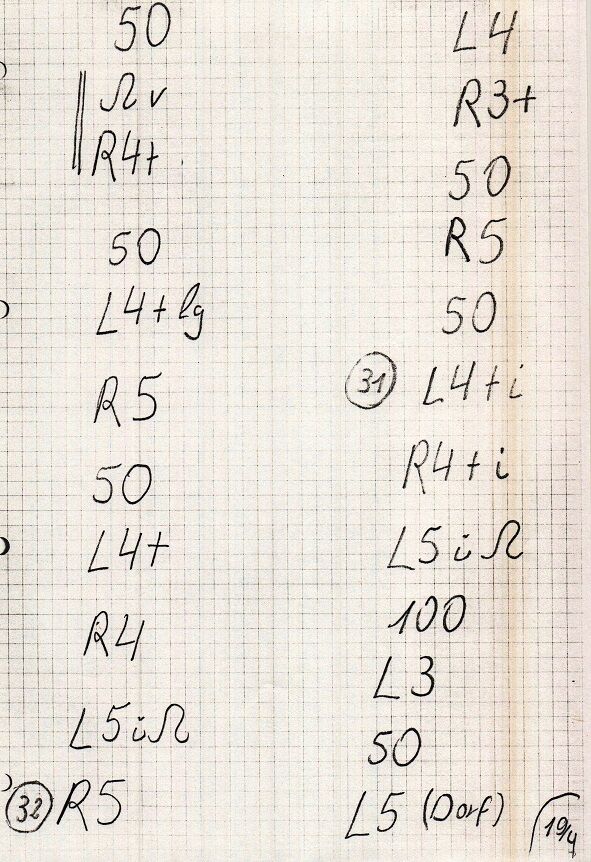 50
Ωv
R4+
50
L4+ lg
R5
50
L4+
R4
L5iΩ
32 R5
L4
R3+
50
R5
50
31 L4+i
R4+i
L5iΩ
100
L3
50
L5 (Dorf)
19/4